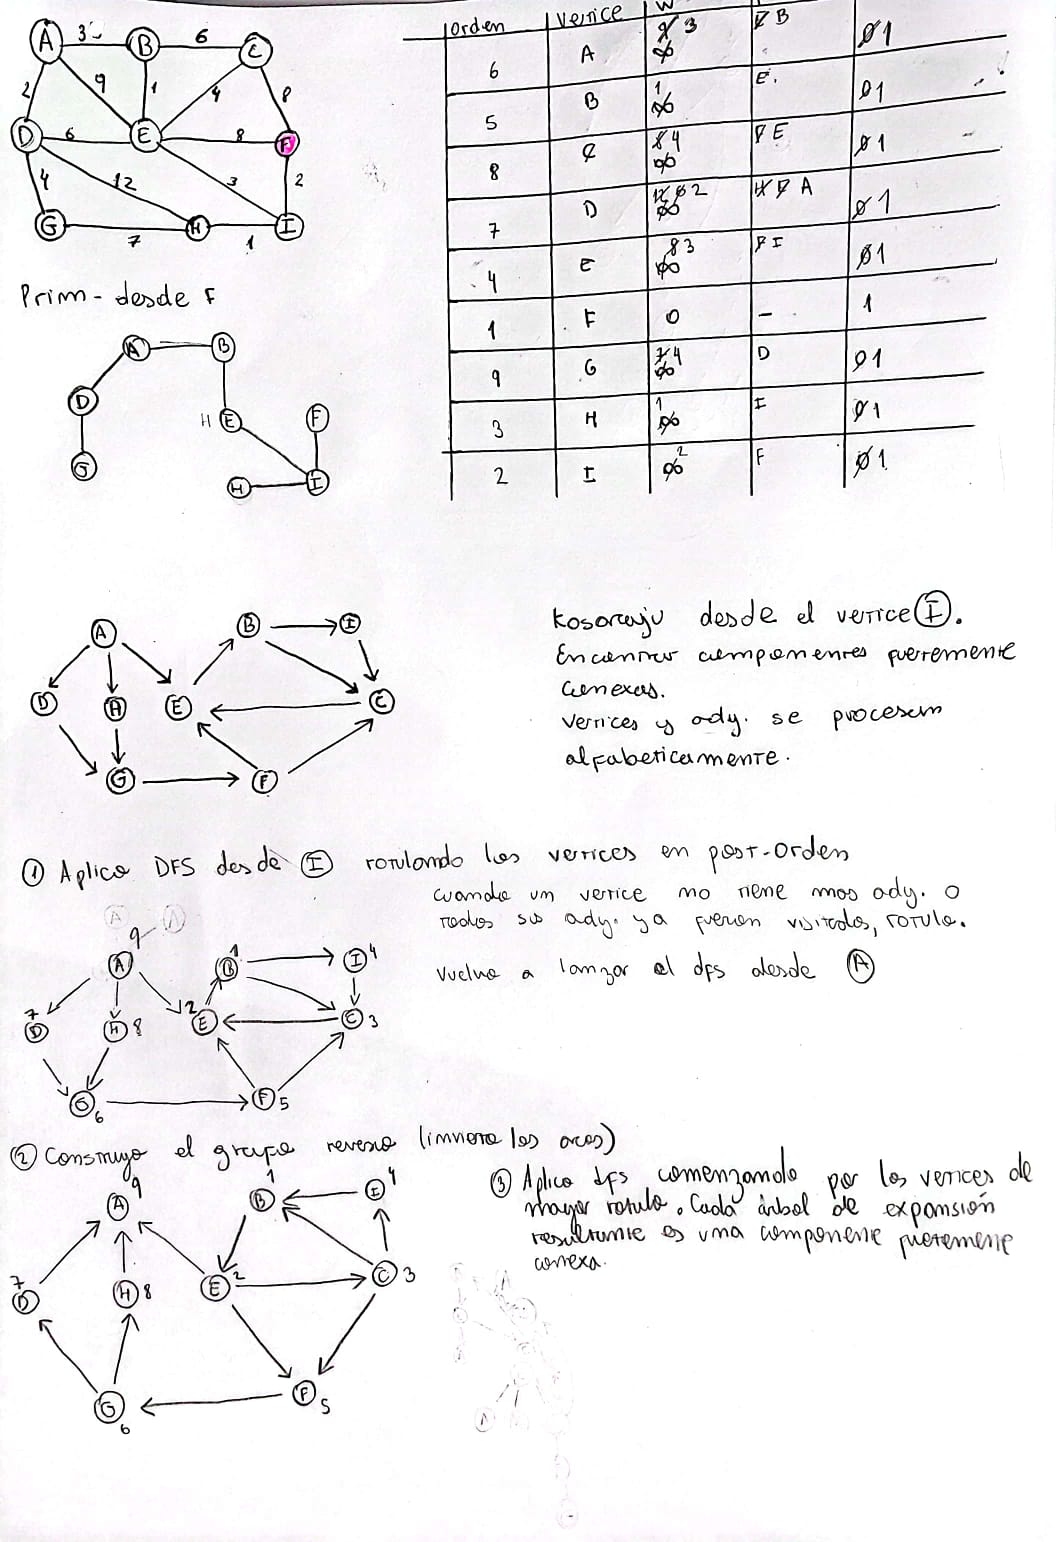 A 3 B 6 C
2 9 1 4 8
D 6 E 8 F
4 12 3 2
G 7 H 1 I
Prim - desde F
A B
D H E F
G H I
Orden Verice W
6 A ∞ 3 B 0 1
5 B ∞ 1 E. 0 1
8 C ∞ 8 4 F E 0 1
7 D ∞ 12 6 2 H E A 0 1
4 E ∞ 8 3 F I 0 1
1 F 0 - 1
9 G ∞ 7 4 D 0 1
3 H ∞ 1 I 0 1
2 I ∞ 2 F 0 1
A B I
D H E C
G F
Kosoraju desde el vertice I.
Encontrar componentes fuertemente
conexas.
Vertices y ady. se procesan
alfabeticamente.
① Aplico DFS desde I rotulando los vertices en post-orden
cuando un vertice no tiene mas ady. o
todos sus ady. ya fueron visitados, rotulo.
Vuelvo a lanzar el dfs desde A
9 A 1 B I 4
7 D H 8 2 E C 3
G 6 F 5
② Construyo el grafo reverso (invierto los arcos)
9 A 1 B I 4
7 D H 8 E 2 C 3
G 6 F 5
③ Aplico dfs comenzando por los vertices de
mayor rotulo. Cada árbol de expansión
resultante es una componente fuertemente
conexa.